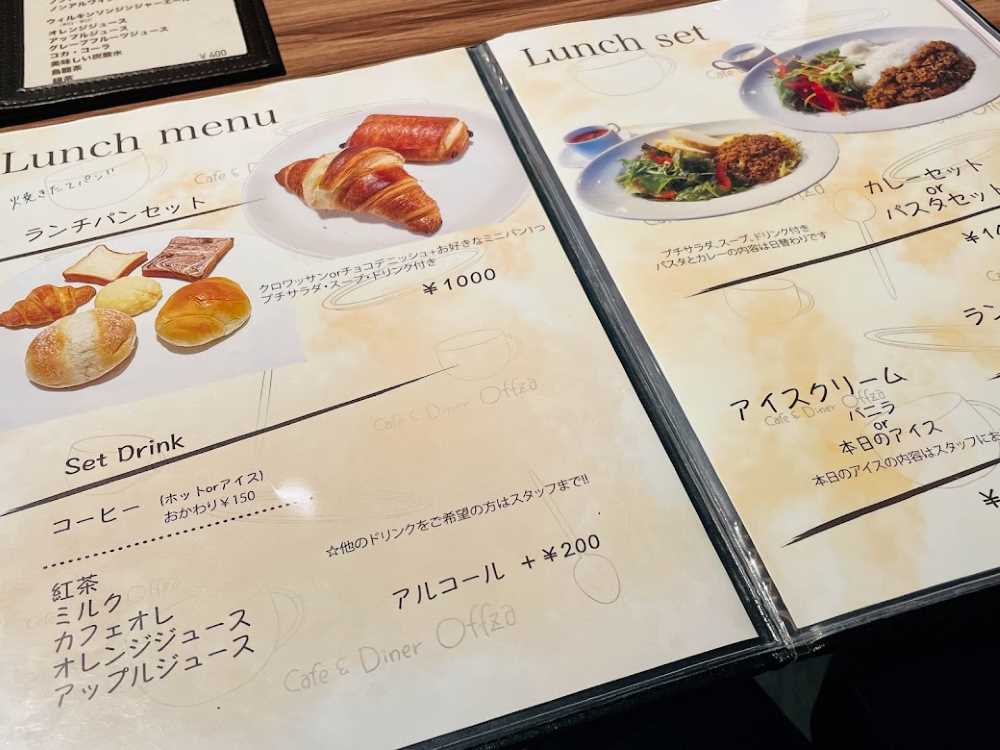 ウィルキンソンジンジャーエール
オレンジジュース
アップルジュース
グレープフルーツジュース
コカ・コーラ
美味しい炭酸水
烏龍茶
緑茶
¥600
Lunch menu
焼きたてパン!!
ランチパンセット
クロワッサンorチョコデニッシュ+お好きなミニパン1つ
プチサラダ・スープ・ドリンク付き
¥1000
Cafe & Diner Offza
Set Drink
コーヒー
(ホットorアイス)
おかわり¥150
☆他のドリンクをご希望の方はスタッフまで!!
紅茶
ミルク
カフェオレ
オレンジジュース
アップルジュース
アルコール +¥200
Cafe & Diner Offza
Lunch set
カレーセット
or
パスタセット
プチサラダ、スープ、ドリンク付き
パスタとカレーの内容は日替わりです
アイスクリーム
Cafe & Diner Offza
バニラ
or
本日のアイス
本日のアイスの内容はスタッフにお
¥